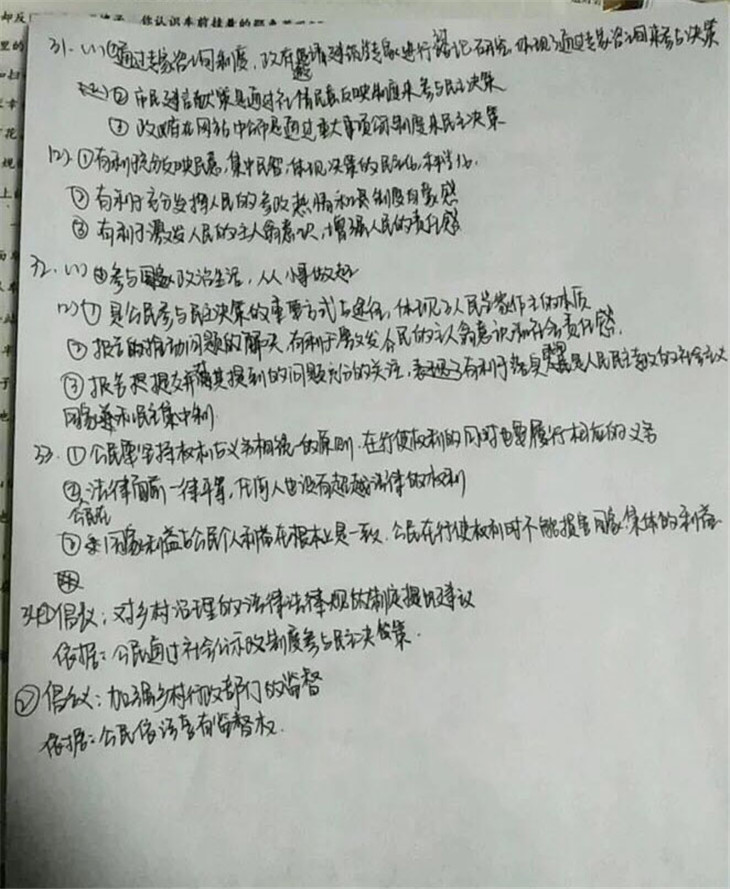 你认识车前挂着的
31. (1) ①通过专家咨询制度, 政府邀请建筑专家进行论证研究, 体现了通过专家咨询来参与决策
② 市民建言献策是通过社情民意反映制度来参与民主决策
③ 政府在网站中公布是通过重大事项公示制度来民主决策
(2) ①有利于充分反映民意, 集中民智, 体现决策的民主化, 科学化.
② 有利于充分发挥人民的参政热情和
③ 有利于激发人民的主人翁意识, 增强人民的责任感
32. (1) ①参与国家政治生活, 从小事做起
(2) ① 是公民参与民主决策的重要方式与途径, 体现了人民当家作主的本质
② 报告的推动问题的解决, 有利于激发公民的主人翁意识和社会责任感.
③ 报告提 其提到的问题充分的关注, 有利于 是人民民主专政的社会主义
国家 和民主集中制
33. ① 公民要坚持权利与义务相统一的原则. 在行使权利的同时也要履行相应的义务
② 法律面前一律平等, 任何人也没有超越法律的权利
公民在
③ 国家利益与公民个人利益在根本上是一致. 公民在行使权利时不能损害国家. 集体的利益
34. ① 倡议: 对乡村治理的法律法律规的制定提出建议
依据: 公民通过社会公示 制度参与民主决策.
② 倡议: 加强乡村行政部门的监督
依据: 公民依法享有监督权.